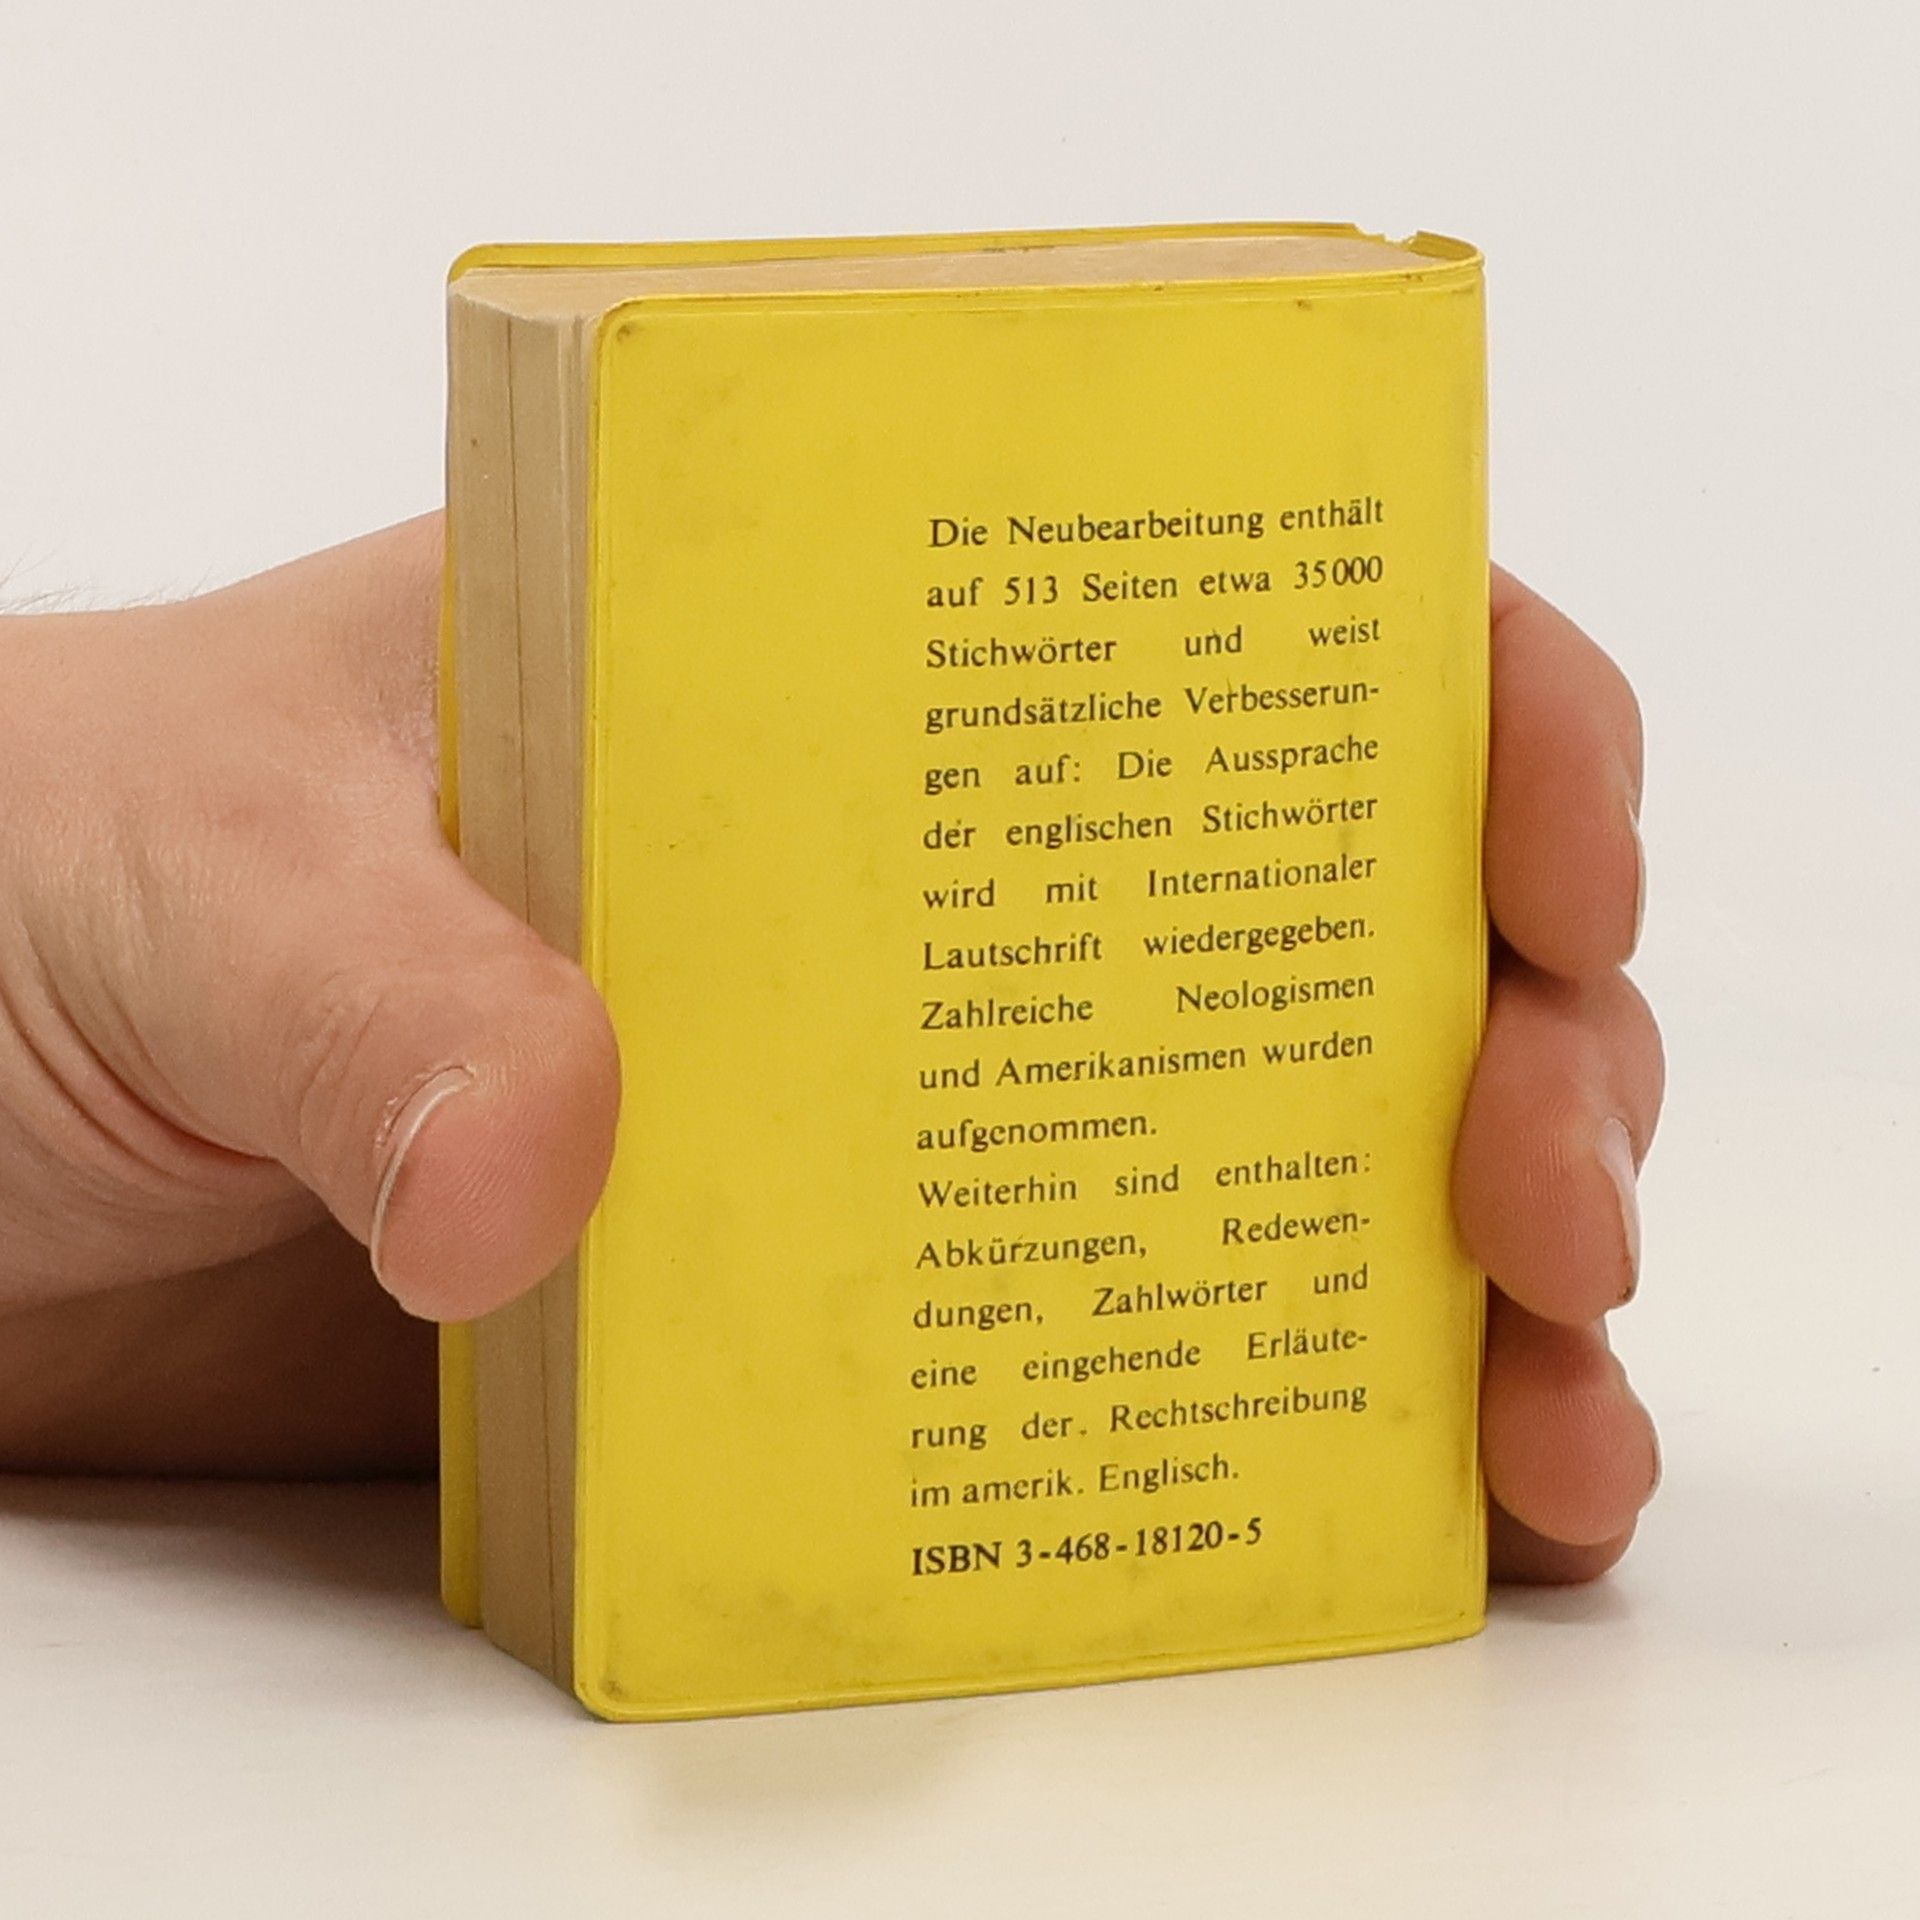 Die Neubearbeitung enthält
auf 513 Seiten etwa 35000
Stichwörter und weist
grundsätzliche Verbesserun-
gen auf: Die Aussprache
der englischen Stichwörter
wird mit Internationaler
Lautschrift wiedergegeben.
Zahlreiche Neologismen
und Amerikanismen wurden
aufgenommen.
Weiterhin sind enthalten:
Abkürzungen, Redewen-
dungen, Zahlwörter und
eine eingehende Erläute-
rung der Rechtschreibung
im amerik. Englisch.
ISBN 3-468-18120-5